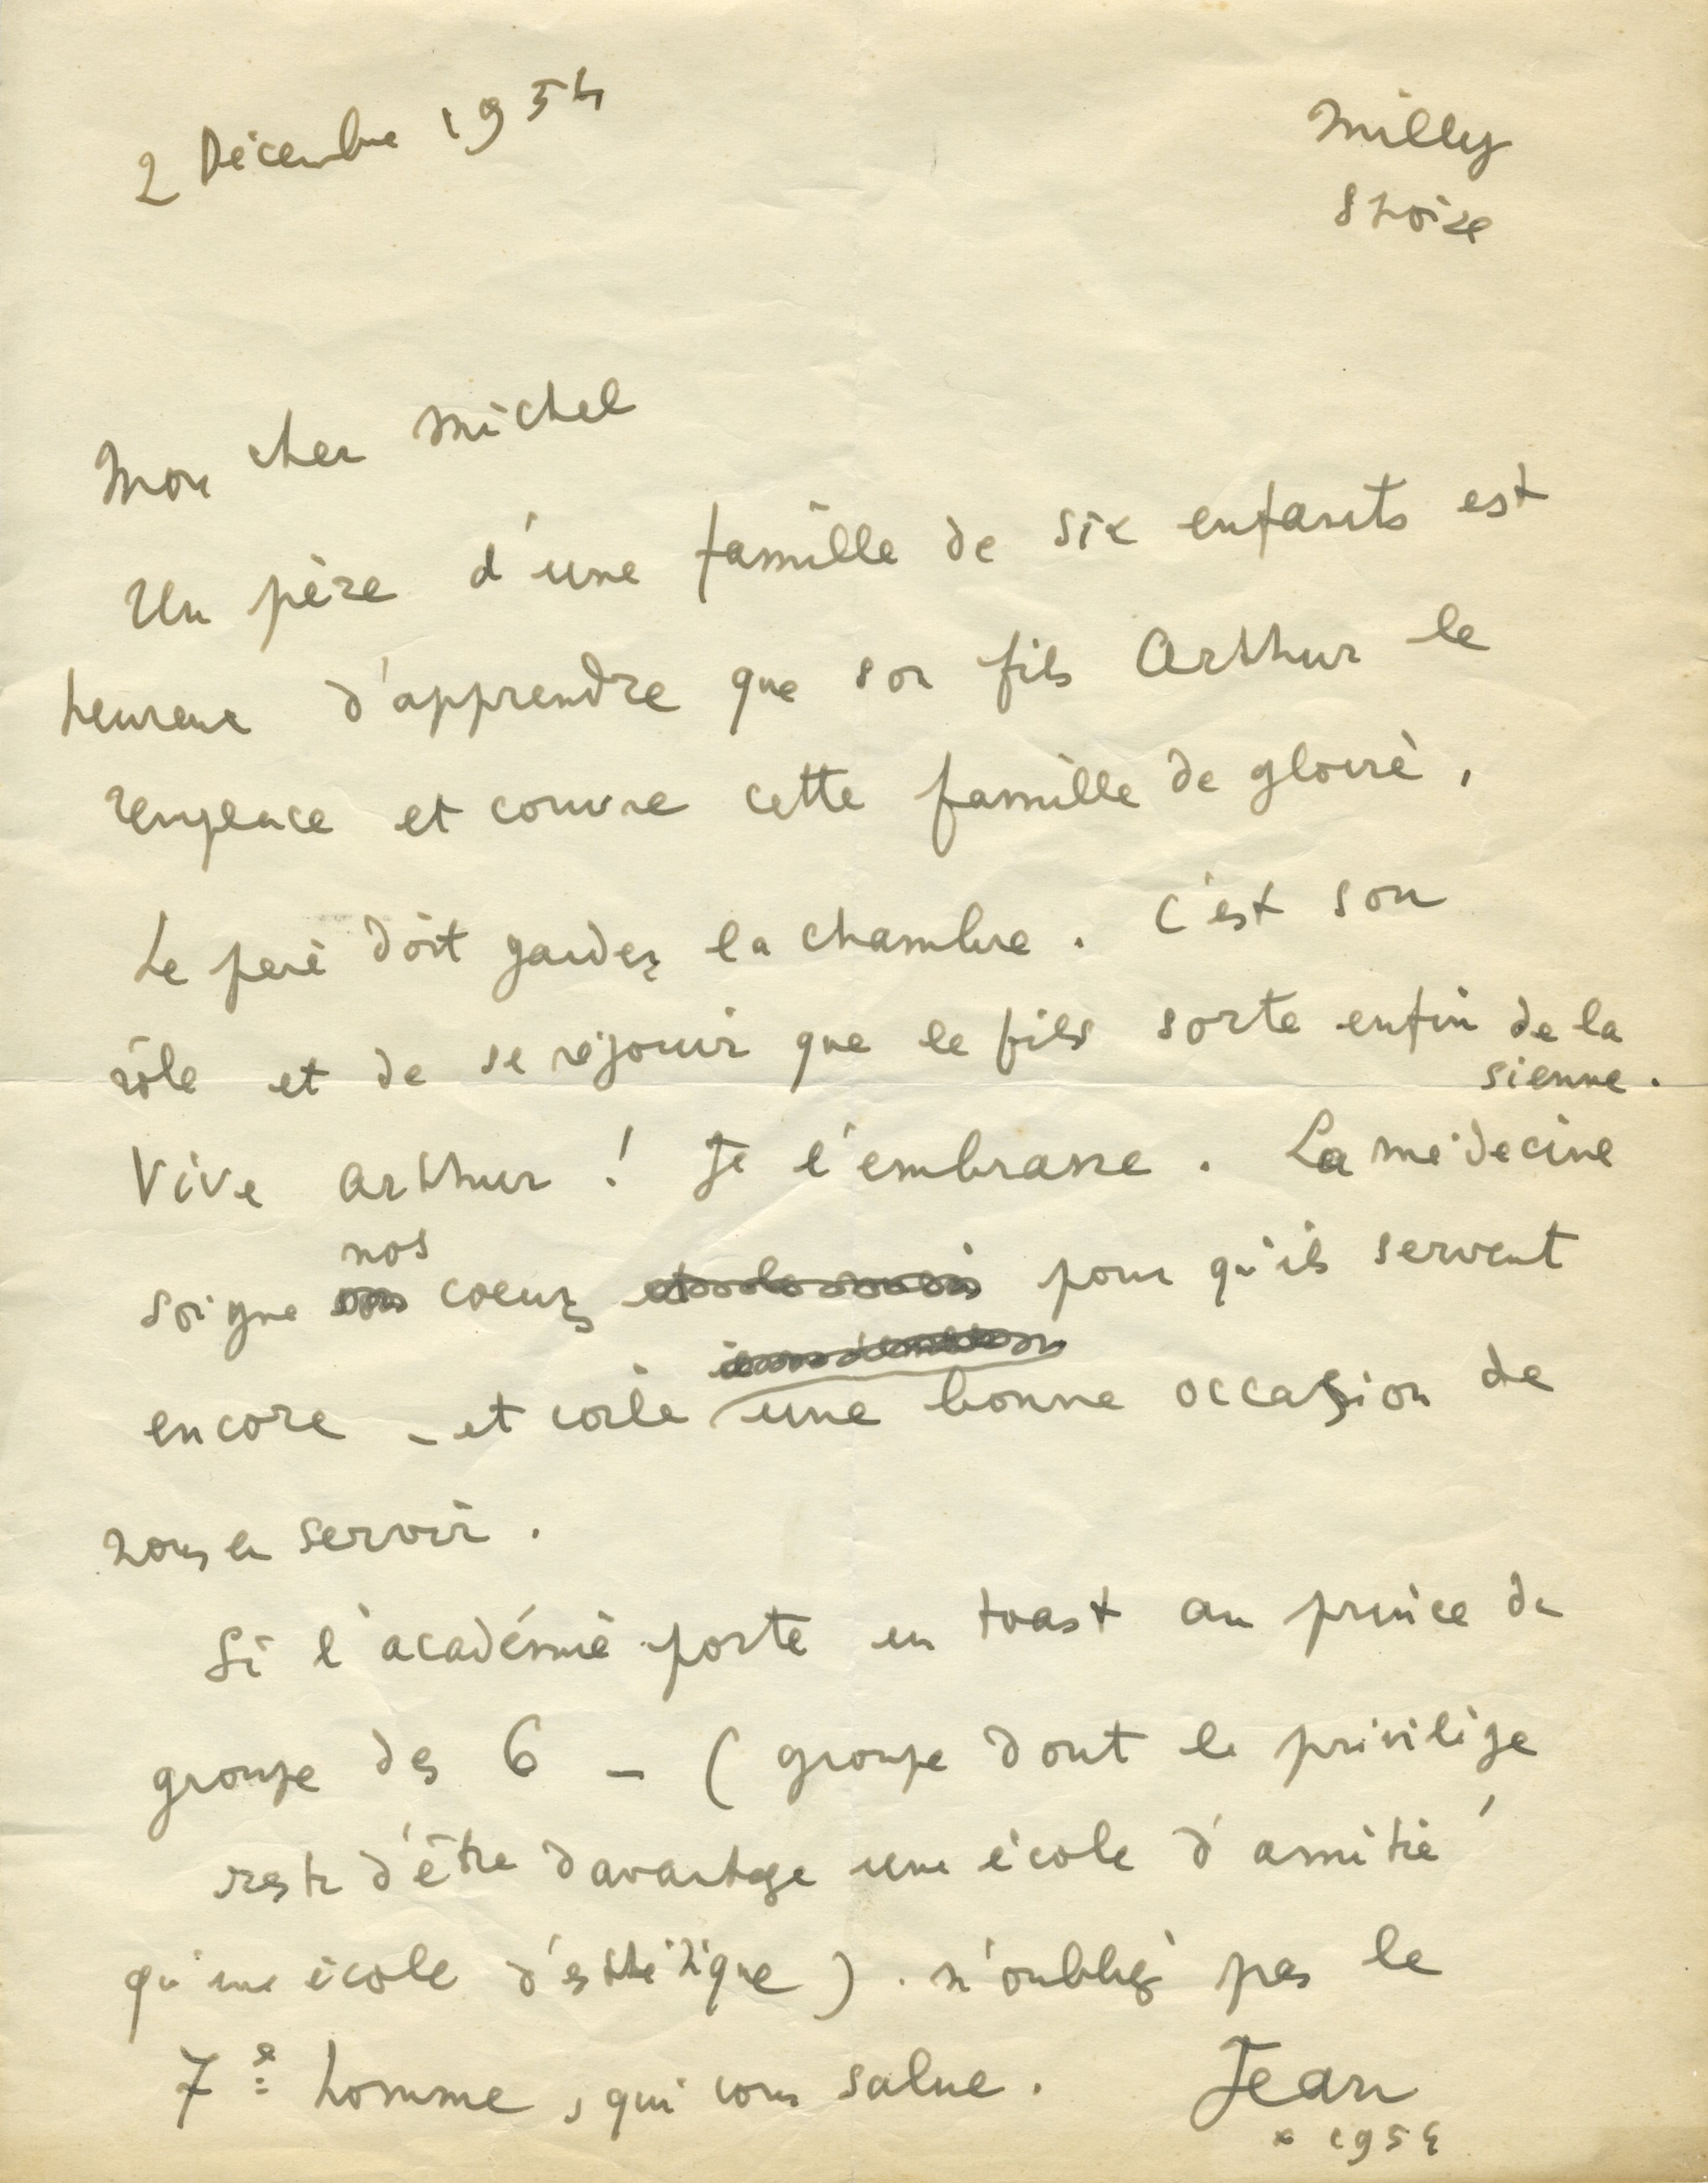 2 Décembre 1954
Milly
S et oise
Mon cher Michel
Un père d'une famille de six enfants est
heureux d'apprendre que son fils Arthur le
remplace et couvre cette famille de gloire.
Le père doit garder la chambre. C'est son
rôle et de se réjouir que le fils sorte enfin de la
sienne.
Vive Arthur ! Je l'embrasse. La médecine
nos
soigne coeurs pour qu'ils servent
encore - et voilà une bonne occasion de
nous en servir.
Si l'académie porte un toast au prince du
groupe des 6 - (groupe dont le privilège
reste d'être davantage une école d'amitié
qu'une école d'esthétique). n'oubliez pas le
7e homme, qui vous salue. Jean
* 1954